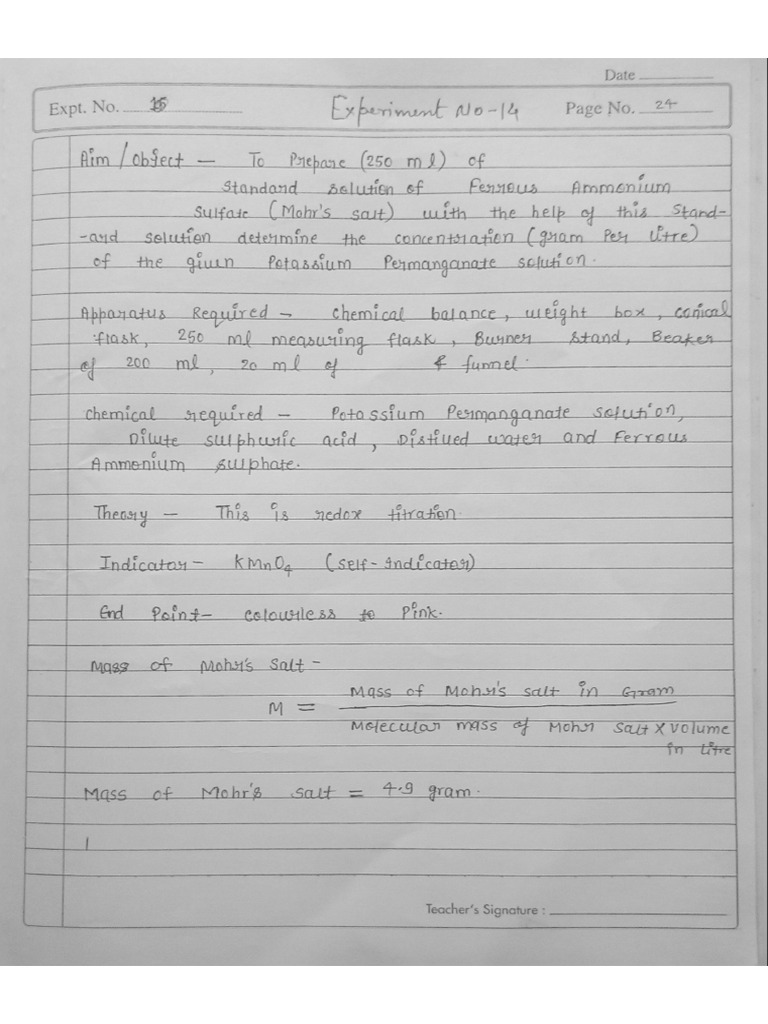 Date
Expt. No. 15 Experiment No-14 Page No. 24
Aim / Object — To Prepare (250 ml) of
Standard solution of Ferrous Ammonium
Sulfate (Mohr's salt) with the help of this Stand-
-ard solution determine the concentration (gram Per litre)
of the given Potassium Permanganate solution.
Apparatus Required — Chemical balance, weight box, conical
flask, 250 ml measuring flask, Burner stand, Beaker
of 200 ml, 20 ml of & funnel.
Chemical required — Potassium Permanganate solution,
Dilute sulphuric acid, Distilled water and Ferrous
Ammonium sulphate.
Theory — This is redox titration.
Indicator — KMnO4 (Self-Indicator)
End Point — colourless to Pink.
Mass of Mohr's Salt —
M = Mass of Mohr's salt in Gram
Molecular mass of Mohr Salt X Volume
in litre
Mass of Mohr's salt = 4.9 gram.
Teacher's Signature :